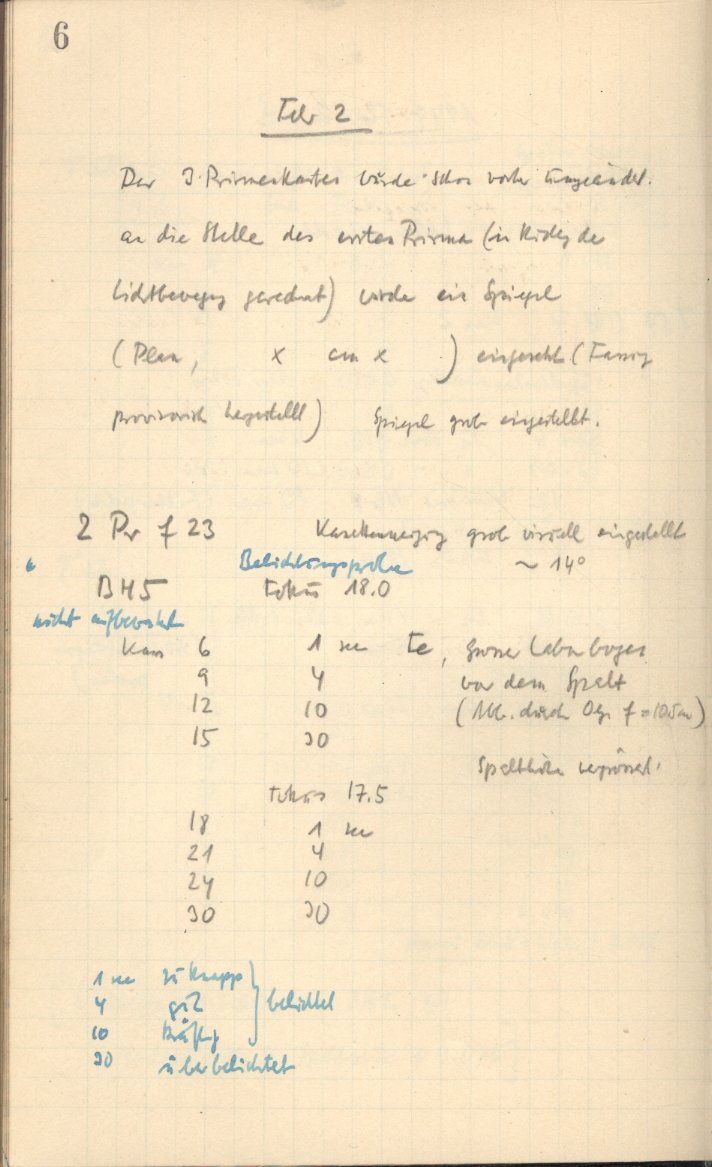 6
Febr 2
Der 3-Prismenkasten wurde schon vorher umgeändert.
an die Stelle des ersten Prisma (in Richtg der
Lichtbewegung gerechnet) wurde ein Spiegel
(Plan, x cm x ) eingesetzt (Fassung
provisorisch hergestellt) Spiegel grob eingestellt.
2 Pr f 23 Kassettenneigung grob visuell eingestellt
Belichtungsprobe ~ 14°
BH5 Fokus 18.0
nicht aufbewahrt
Kass 6 1 sec Fe, grosser Labor bogen
9 4 vor dem Spalt
12 10 (Abb. durch Obj. f = 10.5 cm)
15 30
Spalthöhe vergrössert.
Fokus 17.5
18 1 sec
21 4
24 10
30 30
1 sec zu knapp
4 gut } belichtet
10 kräftig
30 überbelichtet